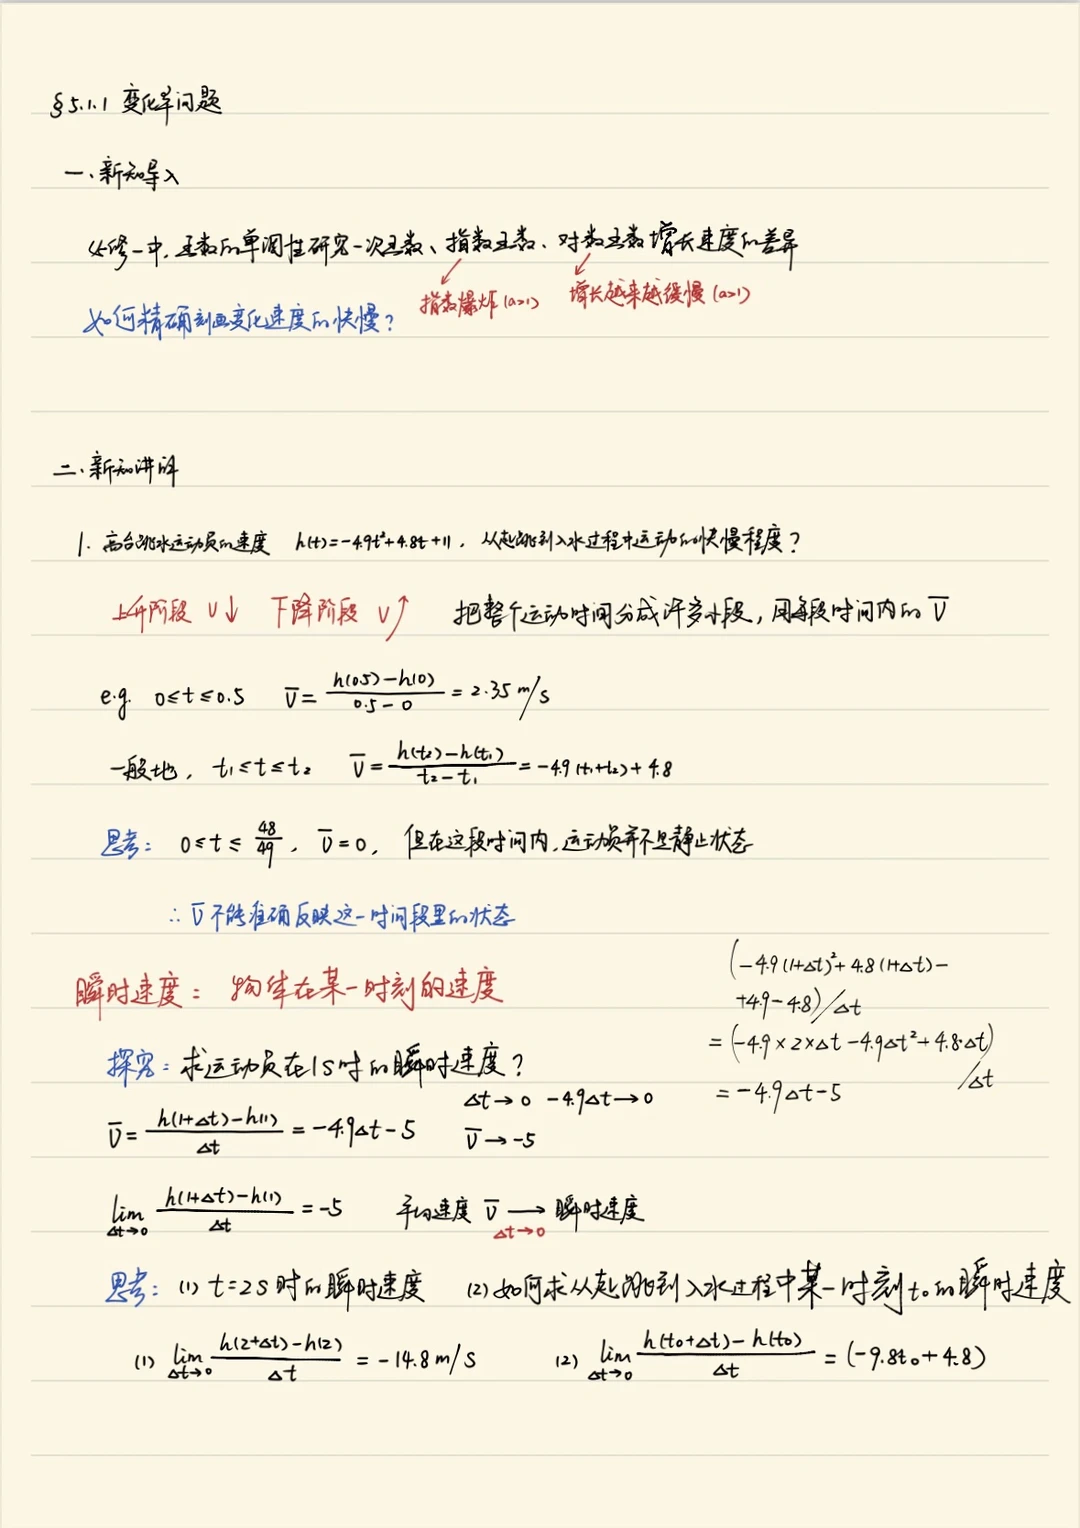 §5.1.1 变化率问题
一.新知导入
必修一中,函数的单调性研究一次函数、指数函数、对数函数增长速度的差异
指数爆炸(a>1) 增长越来越缓慢(a>1)
如何精确刻画变化速度的快慢?
二.新知讲解
1. 高台跳水运动员的速度 h(t)=-4.9t²+4.8t+11, 从起跳到入水过程中运动的快慢程度?
上升阶段 v↓ 下降阶段 v↑ 把整个运动时间分成许多小段,用每段时间内的 v̄
e.g. 0≤t≤0.5 v̄=(h(0.5)-h(0))/(0.5-0)=2.35 m/s
一般地, t₁≤t≤t₂ v̄=(h(t₂)-h(t₁))/(t₂-t₁)=-4.9(t₁+t₂)+4.8
思考: 0≤t≤48/49, v̄=0, 但在这段时间内,运动员并不是静止状态
∴ v̄不能准确反映这一时间段里的状态
瞬时速度: 物体在某一时刻的速度
(-4.9(1+Δt)²+4.8(1+Δt)-
+4.9-4.8)/Δt
=(-4.9×2×Δt-4.9Δt²+4.8·Δt)
/Δt
=-4.9Δt-5
探究:求运动员在1s时的瞬时速度?
Δt→0 -4.9Δt→0
v̄=(h(1+Δt)-h(1))/Δt=-4.9Δt-5 v̄→-5
lim Δt→0 (h(1+Δt)-h(1))/Δt=-5 平均速度 v̄ ⟶ 瞬时速度
Δt→0
思考: (1) t=2s时的瞬时速度 (2)如何求从起跳到入水过程中某一时刻t₀的瞬时速度
(1) lim Δt→0 (h(2+Δt)-h(2))/Δt=-14.8m/s (2) lim Δt→0 (h(t₀+Δt)-h(t₀))/Δt=(-9.8t₀+4.8)